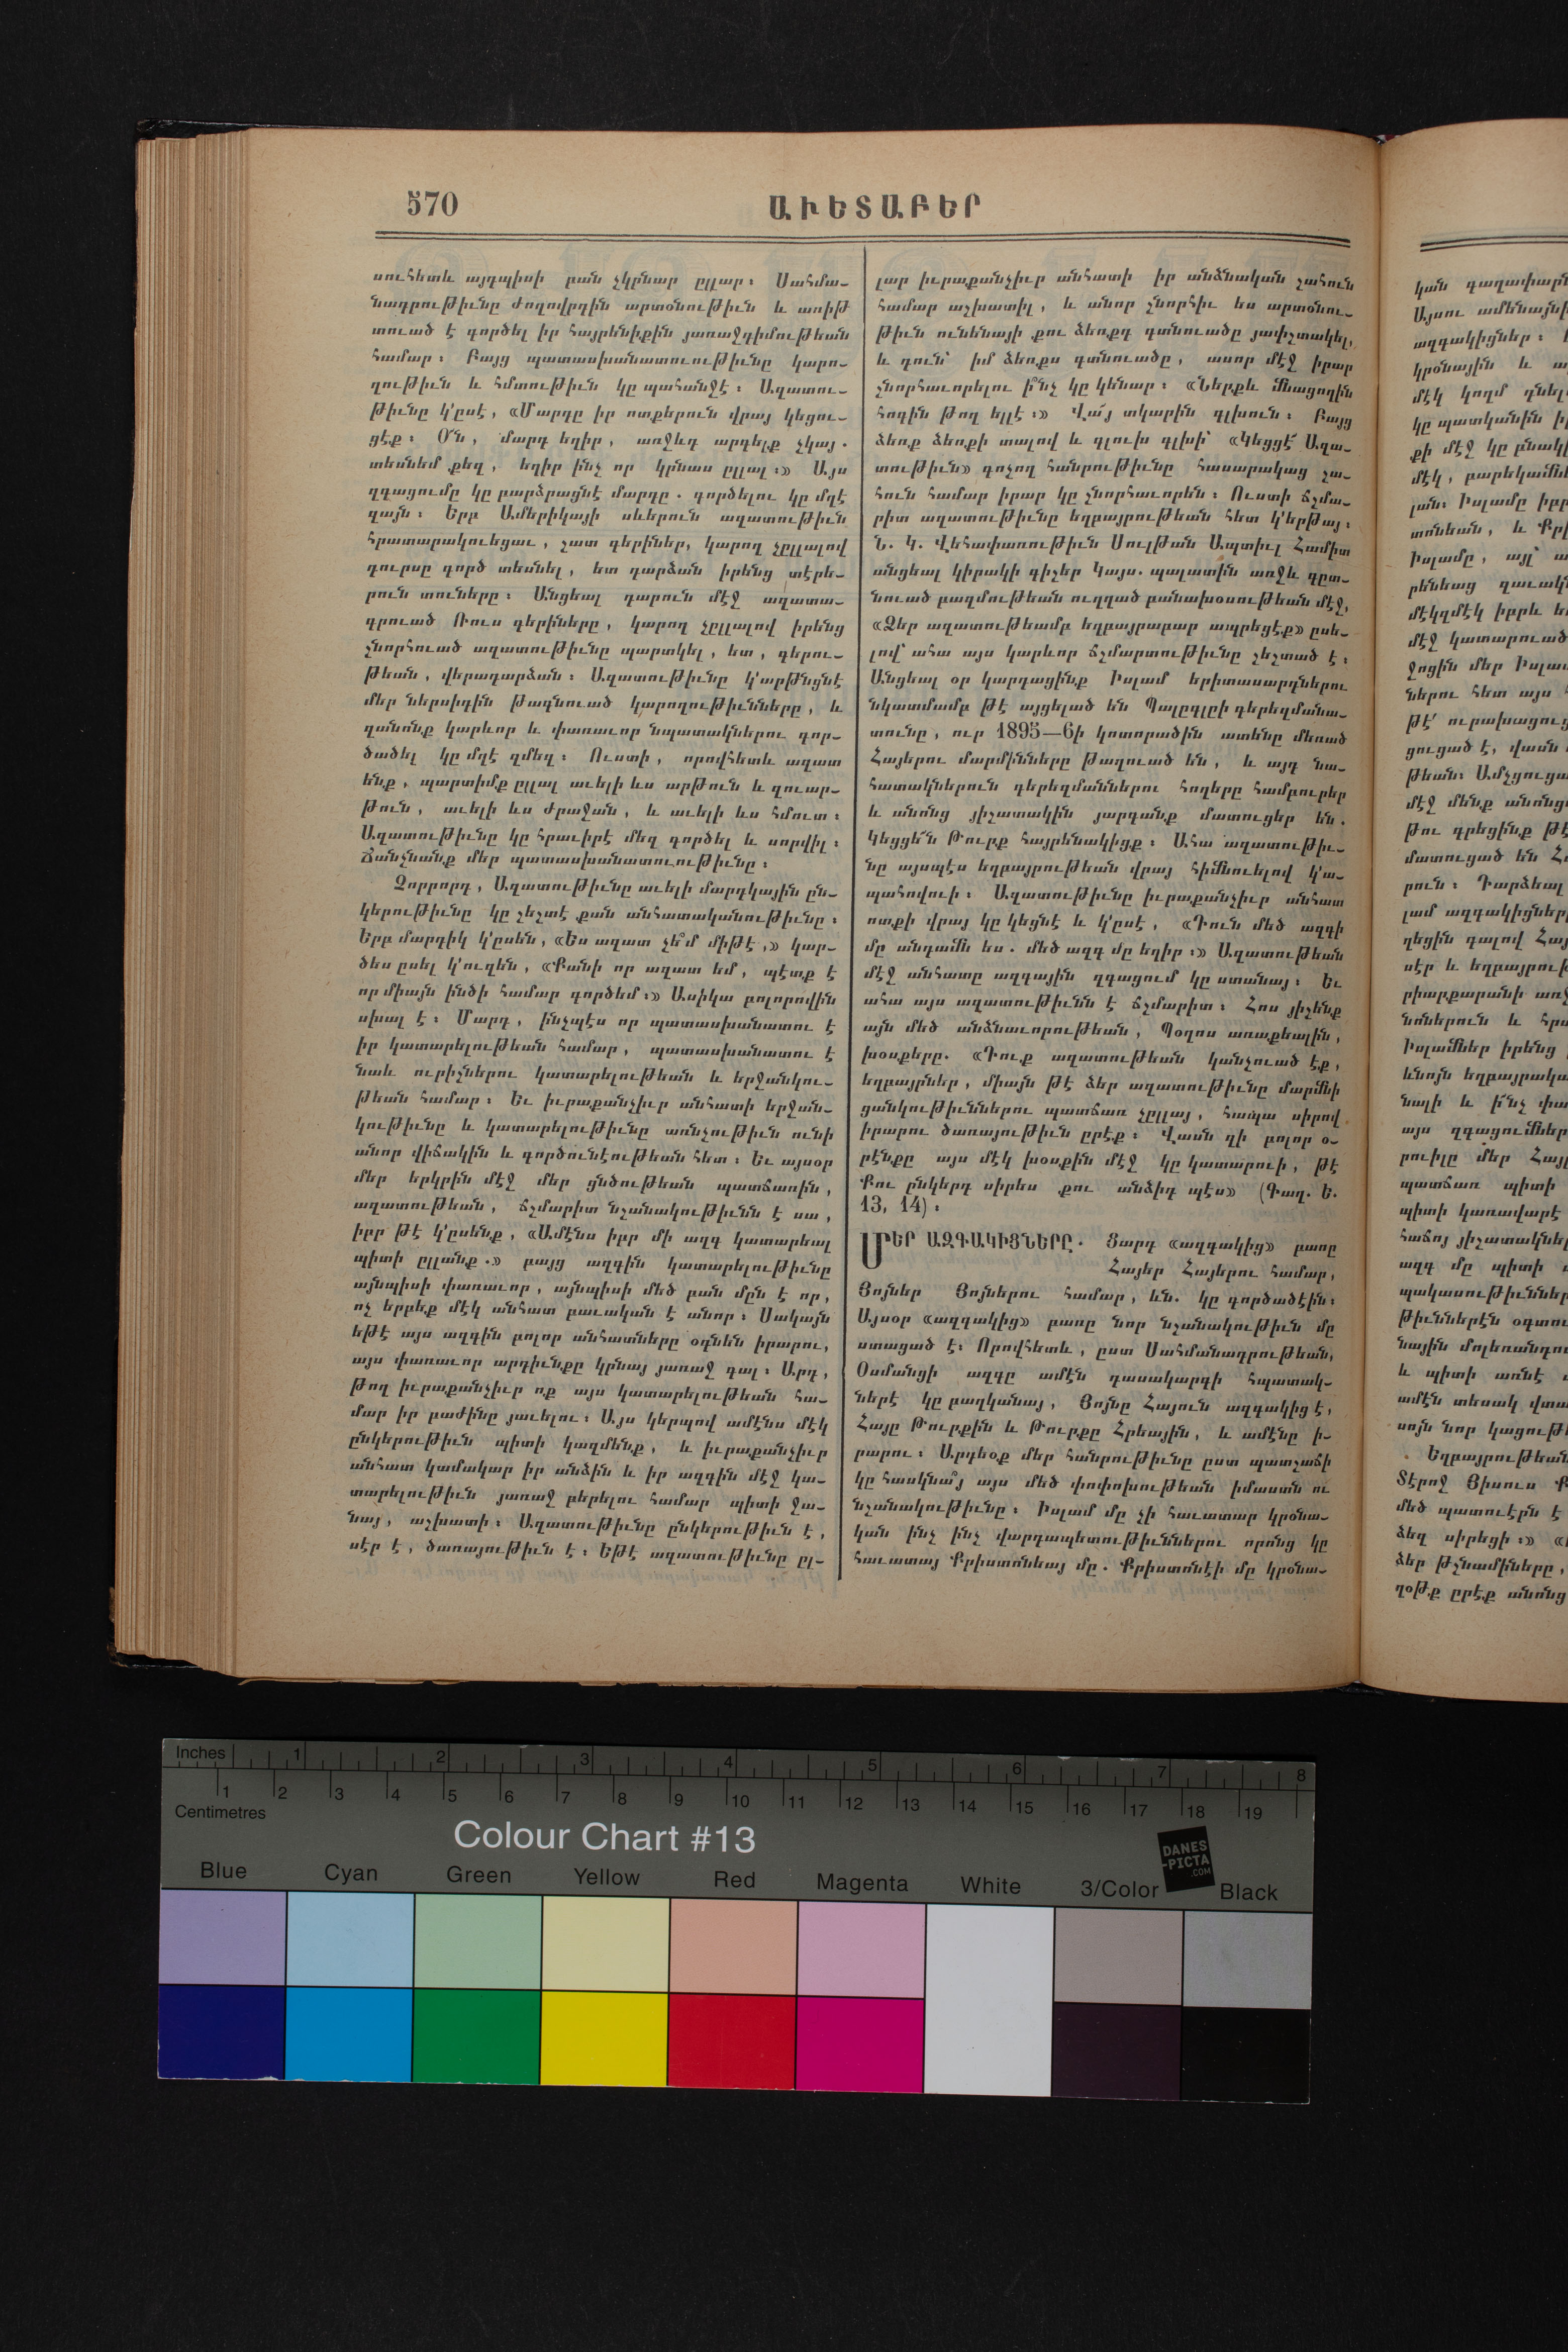 570
ԱՒԵՏԱԲԵՐ
սուհետև այդպիսի բան չկրնար ըլլար։ Սահմա-
նադրութիւնը ժողովրդին արտօնութիւն և առիթ
տուած է գործել իր հայրենիքին յառաջդիմութեան
համար։ Բայց պատասխանատուութիւնը կարո-
ղութիւն և հմտութիւն կը պահանջէ։ Ազատու-
թիւնը կ՚ըսէ, «Մարդը իր ոտքերուն վրայ կեցու-
ցէք։ Օ՜ն, մարդ եղիր, առջևդ արդելք չկայ.
տեսնեմ քեզ, եղիր ինչ որ կրնաս ըլլալ։» Այս
զգացումը կը բարձրացնէ մարդը. գործելու կը մղէ
զայն։ Երբ Ամերիկայի սևերուն ազատութիւն
հրատարակուեցաւ, շատ գերիներ, կարող չըլլալով
դուրսը գործ տեսնել, ետ դարձան իրենց տէրե-
րուն տուները։ Անցեալ դարուն մէջ ազատա-
գրուած Ռուս գերիները, կարող չըլլալով իրենց
շնորհուած ազատութիւնը պարտկել, ետ, գերու-
թեան, վերադարձան։ Ազատութիւնը կ՚արթնցնէ
մեր ներսիդին թագնուած կարողութիւնները, և
զանոնք կարևոր և փառաւոր նպատակներու գոր-
ծածել կը մղէ զմեզ։ Ուստի, որովհետև ազատ
ենք, պարտիմք ըլլալ աւելի ևս արթուն և զուար-
թուն, աւելի ևս ժրաջան, և աւելի ևս հմուտ։
Ազատութիւնը կը հրաւիրէ մեզ գործել և սորվիլ։
Ճանչնանք մեր պատասխանատուութիւնը։
Չորրորդ, Ազատութիւնը աւելի մարդկային ըն-
կերութիւնը կը շեշտէ քան անհատականութիւնը։
Երբ մարդիկ կ՚ըսեն, «Ես ազատ չե՞մ միթէ,» կար-
ծես ըսել կ՚ուզեն, «Քանի որ ազատ եմ, պէտք է
որ միայն ինծի համար գործեմ։» Ասիկա բոլորովին
սխալ է։ Մարդ, ինչպէս որ պատասխանատու է
իր կատարելութեան համար, պատասխանատու է
նաև ուրիշներու կատարելութեան և երջանկու-
թեան համար։ Եւ իւրաքանչիւր անհատի երջան-
կութիւնը և կատարելութիւնը առնչութիւն ունի
անոր վիճակին և գործունէութեան հետ։ Եւ այսօր
մեր երկրին մէջ մեր ցնծութեան պատճառին,
ազատութեան, ճշմարիտ նշանակութիւնն է սա,
իբր թէ կ՚ըսենք, «Ամէնս իբր մի ազգ կատարեալ
պիտի ըլլանք.» բայց ազգին կատարելութիւնը
այնպիսի փառաւոր, այնպիսի մեծ բան մըն է որ,
ոչ երբեք մէկ անհատ բաւական է անոր։ Սակայն
եթէ այս ազգին բոլոր անհատները օգնեն իրարու,
այս փառաւոր արդիւնքը կրնայ յառաջ գալ։ Արդ,
թող իւրաքանչիւր ոք այս կատարելութեան հա-
մար իր բաժինը յաւելու։ Այս կերպով ամէնս մէկ
ընկերութիւն պիտի կազմենք, և իւրաքանչիւր
անհատ կամակար իր անձին և իր ազգին մէջ կա-
տարելութիւն յառաջ բերելու համար պիտի ջա-
նայ, աշխատի։ Ազատութիւնը ընկերութիւն է,
սէր է, ծառայութիւն է։ Եթէ ազատութիւնը ըլ-
լար իւրաքանչիւր անհատի իր անձնական շահուն
համար աշխատիլ, և անոր շնորհիւ ես արտօնու-
թիւն ունենայի քու ձեռքդ գտնուածը յափշտակել,
և դուն՝ իմ ձեռքս գտնուածը, ասոր մէջ իրար
շնորհաւորելու ի՞նչ կը կենար։ «Ներքև մնացողին
հոգին թող ելլէ։» Վա՜յ տկարին գլխուն։ Բայց
ձեռք ձեռքի տալով և գլուխ գլխի՝ «Կեցցէ՜ Ազա-
տութիւն» գոչող հանրութիւնը հասարակաց շա-
հուն համար իրար կը շնորհաւորեն։ Ուստի ճշմա-
րիտ ազատութիւնը եղբայրութեան հետ կ՚երթայ։
Ն. Կ. Վեհափառութիւն Սուլթան Ապտիւլ Համիտ
անցեալ կիրակի գիշեր Կայս. պալատին առջև գըտ-
նուած բազմութեան ուղղած բանախօսութեան մէջ,
«Ձեր ազատութեամբ եղբայրաբար ապրեցէք» ըսե-
լով՝ ահա այս կարևոր ճշմարտութիւնը շեշտած է։
Անցեալ օր կարդացինք Իսլամ երիտասարդներու
նկատմամբ թէ այցելած են Պալըգլըի գերեզմանա-
տունը, ուր 1895—6ի կոտորածին ատենը մեռած
Հայերու մարմինները թաղուած են, և այդ նա-
հատակներուն գերեզմաններու հողերը համբուրեր
և անոնց յիշատակին յարգանք մատուցեր են.
Կեցցե՜ն Թուրք հայրենակիցք։ Ահա ազատութիւ-
նը այսպէս եղբայրութեան վրայ հիմնուելով կ՚ա-
պահովուի։ Ազատութիւնը իւրաքանչիւր անհատ
ոտքի վրայ կը կեցնէ և կ՚ըսէ, «Դուն մեծ ազգի
մը անդամն ես. մեծ ազգ մը եղիր։» Ազատութեան
մէջ անհատը ազգային զգացում կը ստանայ։ Եւ
ահա այս ազատութիւնն է ճշմարիտ։ Հոս յիշենք
այն մեծ անձնաւորութեան, Պօղոս առաքեալին,
խօսքերը. «Դուք ազատութեան կանչուած էք,
եղբայրներ, միայն թէ ձեր ազատութիւնը մարմնի
ցանկութիւններու պատճառ չըլլայ, հապա սիրով
իրարու ծառայութիւն ըրէք։ Վասն զի բոլոր օ-
րէնքը այս մէկ խօսքին մէջ կը կատարուի, թէ
Քու ընկերդ սիրես քու անձիդ պէս» (Գաղ. Ե.
13, 14)։
ՄԵՐ ԱԶԳԱԿԻՑՆԵՐԸ. Ցարդ «ազգակից» բառը
Հայեր Հայերու համար,
Յոյներ Յոյներու համար, ևն. կը գործածէին։
Այսօր «ազգակից» բառը նոր նշանակութիւն մը
ստացած է։ Որովհետև, ըստ Սահմանադրութեան,
Օսմանցի ազգը ամէն դասակարգի հպատակ-
ներէ կը բաղկանայ, Յոյնը Հայուն ազգակից է,
Հայը Թուրքին և Թուրքը Հրեային, և ամէնը ի-
րարու։ Արդեօք մեր հանրութիւնը ըստ պատշաճի
կը հասկնա՞յ այս մեծ փոփոխութեան իմաստն ու
նշանակութիւնը։ Իսլամ մը չի հաւատար կրօնա-
կան ինչ ինչ վարդապետութիւններու որոնց կը
հաւատայ Քրիստոնեայ մը. Քրիստոնէի մը կրօնա-
կան
Այսու
ազգակիցներ։
կրօնային և
մէկ կողմ դնել
կը պատկանին
քի մէջ կը բնակի
մէկ,
լան։ Իսլամը իբր
տոնեան, և Քրի
Իսլամը, այլ՝
րենեաց զաւակ
մէկզմէկ իբրև
մէջ կատարուած
ջոցին մեր Իսլամ
ներու հետ այս
թէ՛ ուրախացուց
ցուցած է, վասն
թեան։
մէջ մենք անոնց
թու գրեցինք թէ
մատուցած են
րուն։ Դարձեալ
լամ ազգակիցներ
ղեցին գալով Հայ
սէր և եղբայրութ
րիարքարանի առջ
նոներուն և
Իսլամներ իրենց
ևնոյն եղբայրակա
նալի և ի՜նչ փա
այս զգացումներ
րուիլը մեր Հայ
պատճառ պիտի
պիտի կառավարէ
հաճոյ յիշատակնե
ազգ մը պիտի
պակասութիւններ
թիւններէն օգտու
նային մոլեռանդու
և պիտի առնէ
ամէն տեսակ վտա
սոյն նոր կացութ
Եղբայրութեան
Տէրոջ Յիսուս Ք
մեծ պատուէրն է
ձեզ սիրեցի։»
ձեր թշնամիները,
ղօթք ըրէք անոնց
Inches 1 2 3 4 5 6 7 8
1 2 3 4 5 6 7 8 9 10 11 12 13 14 15 16 17 18 19
Centimetres
Colour Chart #13
DANES
-PICTA
.COM
Blue Cyan Green Yellow Red Magenta White 3/Color Black